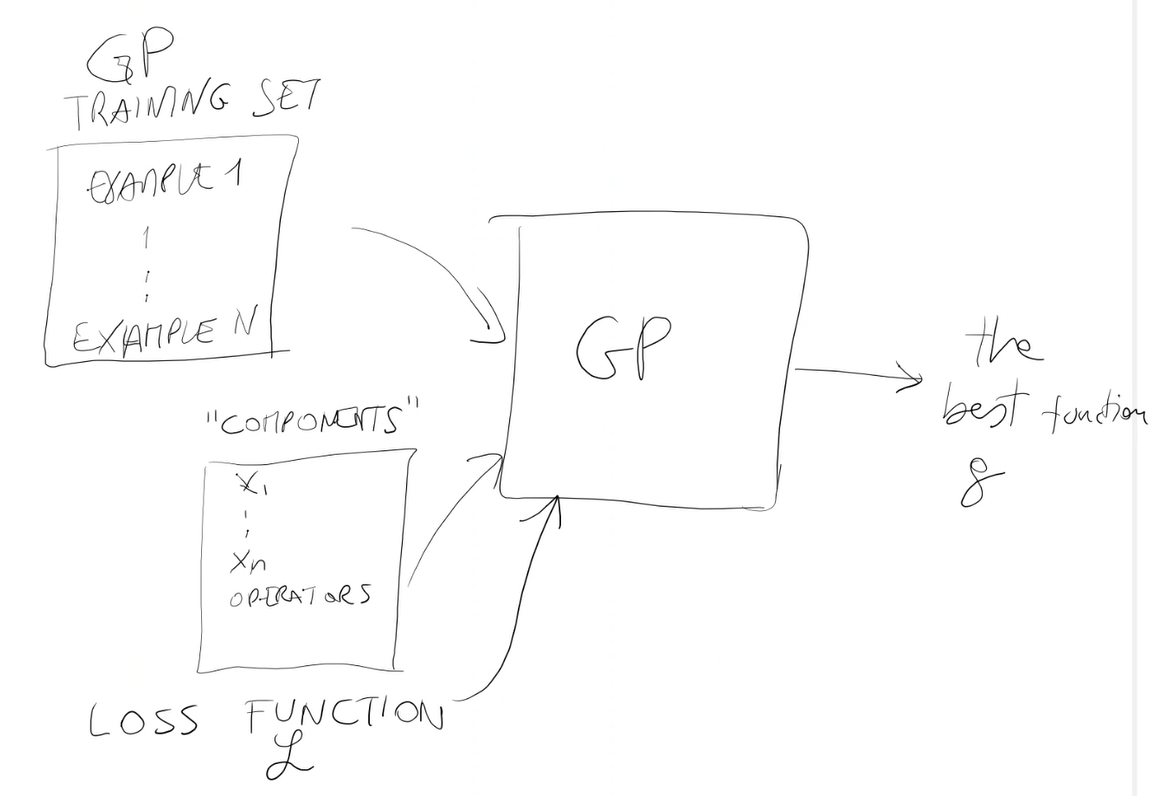 GP
TRAINING SET
EXAMPLE 1
EXAMPLE N
"COMPONENTS"
X1
Xn
OPERATORS
LOSS FUNCTION
ℒ
GP
the
best function